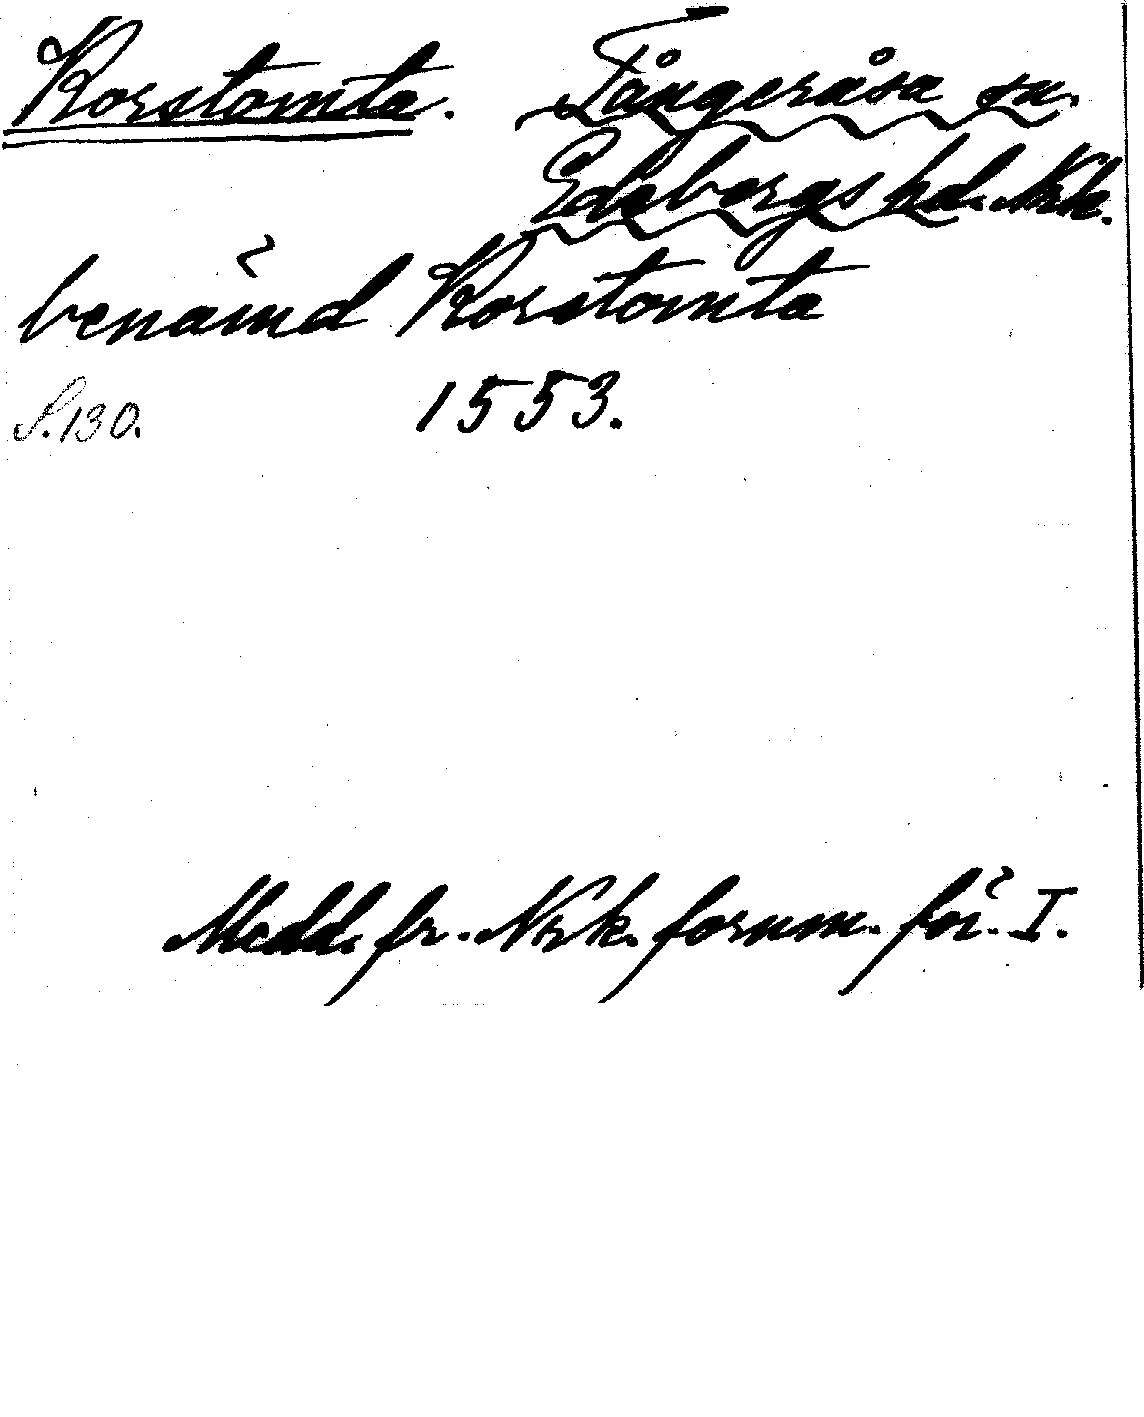 Korstomta. Tångeråsa sn.
Edsbergs hd. Nrk.
benämnd Korstomta
S. 130. 1553.
Medd. fr. Nrk. fornm. för. I.